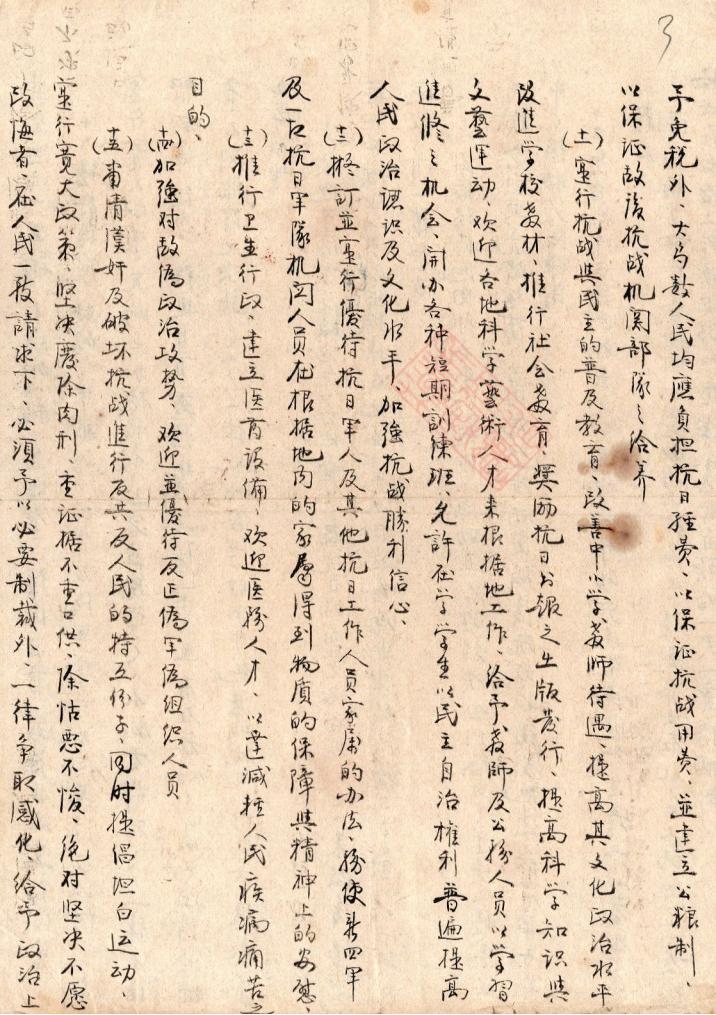 3
予免税外、大多数人民均應负担抗日經费、以保证抗战用费、並建立公粮制、
以保证敌後抗战机関部隊之给养
(十一)实行抗战與民主的普及教育、改善中小学教师待遇、提高其文化政治水平、
改進学校教材、推行社会教育、奨励抗日书報之出版發行、提高科学知识與
文藝運动、欢迎各地科学藝術人才来根据地工作、给予教师及公务人员以学習
進修之机会、開办各种短期訓練班、允許在学学生以民主自治權利普遍提高
人民政治認识及文化水平、加強抗战勝利信心、
(十二)拟訂並实行優待抗日軍人及其他抗日工作人员家属的办法、务使新四軍
及一切抗日軍隊机関人员在根据地内的家属得到物质的保障與精神上的安慰、
(十三)推行卫生行政、建立医药设備、欢迎医务人才、以達減輕人民疾病痛苦之
目的、
(十四)加強对敌偽政治攻势、欢迎並優待反正偽军偽组织人员
(十五)肃清漢奸及破坏抗战進行反共反人民的特工份子、同时提倡坦白运动、
实行宽大政策、坚决廢除肉刑、重证据不重口供、除怙恶不悛、绝对坚决不愿
改悔者、在人民一致請求下、必須予以必要制裁外、一律争取感化、给予政治上